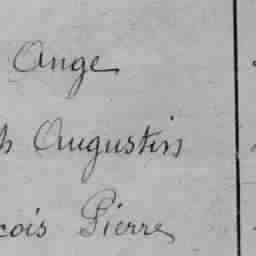 Ange
h Augustin
çois Pierre